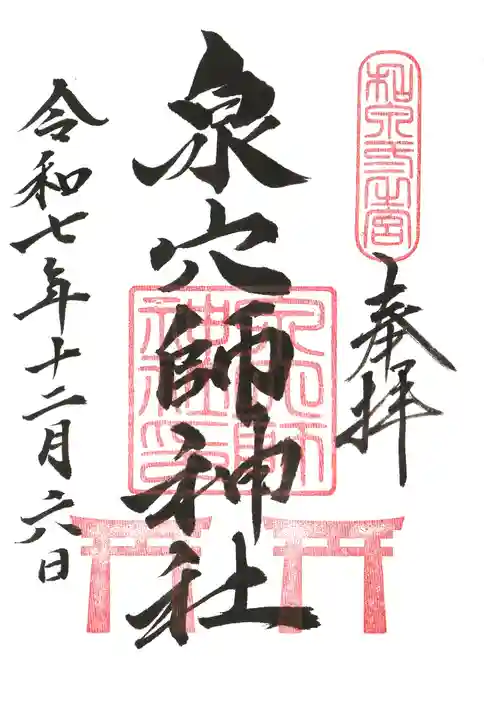 和泉二之宮
奉拝
泉穴師神社
泉穴師神社印
令和七年十二月六日